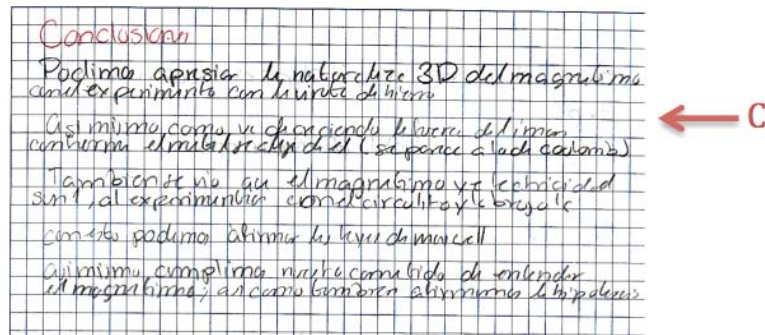 Conclusion
Podimos apresiar la naturaleza 3D del magnetismo
con el experimento con la viruta de hierro
Asi mismo, como va decreciendo la fuerza del iman
conforme el metal se aleja de el (se parece a la de Coulomb)
Tambien se vio que el magnetismo y electricidad
son 1, al experimentar con el circuito y la brujula
con esto podemos afirmar las leyes de maxwell
asi mismo, cumplimos nuestro cometido de entender
el magnetismo, asi como tambien afirmamos la hipotesis
C